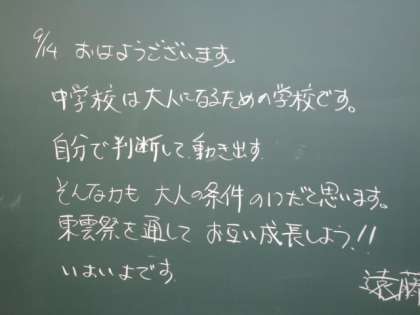 9/14 おはようございます。
中学校は大人になるための学校です。
自分で判断して、動き出す
そんな力も 大人の条件の1つだと思います。
東雲祭を通して お互い成長しよう!!
いよいよです
遠藤